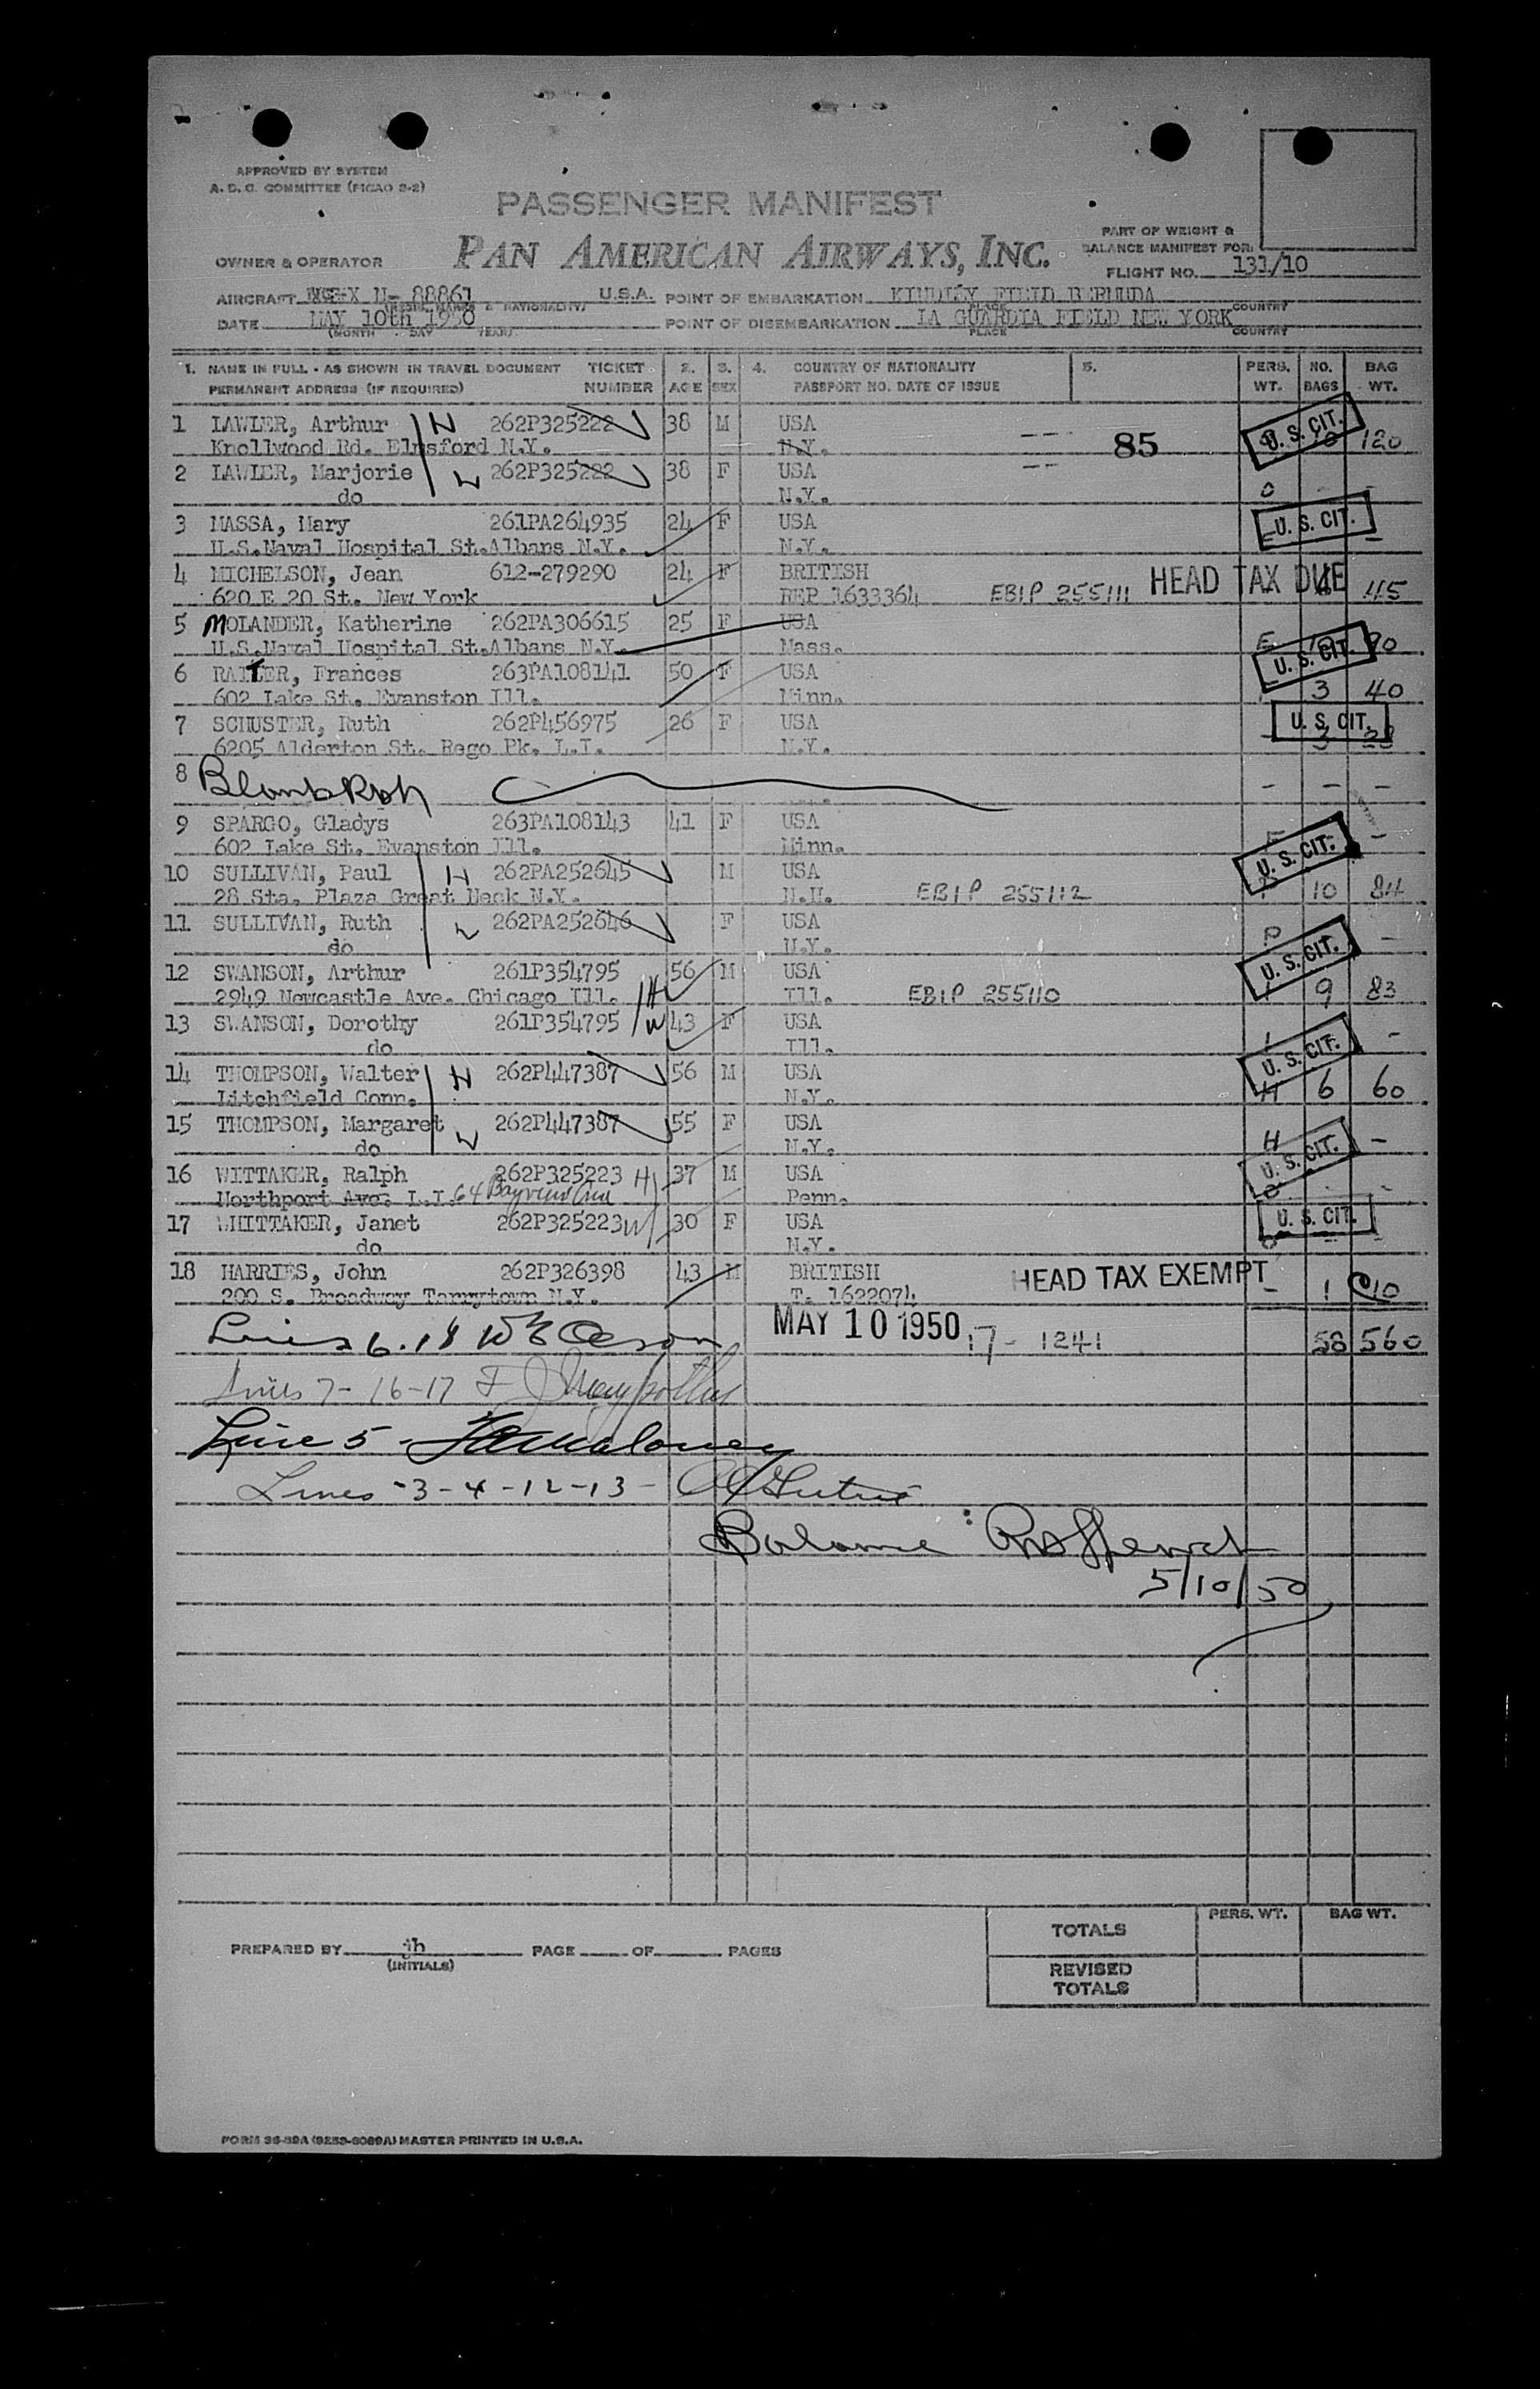 APPROVED BY SYSTEM
A. D. C. COMMITTEE (PICAO 2-2)
PASSENGER MANIFEST
PAN AMERICAN AIRWAYS, INC.
PART OF WEIGHT &
BALANCE MANIFEST FOR
OWNER & OPERATOR
FLIGHT NO. 131/10
AIRCRAFT N- 88861 U.S.A. POINT OF EMBARKATION KINDLEY FIELD BERMUDA
PLACE COUNTRY
DATE MAY 10th 1950 POINT OF DISEMBARKATION LA GUARDIA FIELD NEW YORK
(MONTH DAY YEAR) PLACE COUNTRY
1. NAME IN FULL - AS SHOWN IN TRAVEL DOCUMENT TICKET 2. 3. 4. COUNTRY OF NATIONALITY 5. PERS. NO. BAG
PERMANENT ADDRESS (IF REQUIRED) NUMBER AGE SEX PASSPORT NO. DATE OF ISSUE WT. BAGS WT.
1 LAWLER, Arthur H 262P325222 38 M USA U. S. CIT.
Knollwood Rd. Elmsford N.Y. N.Y. 85 120
2 LAWLER, Marjorie W 262P325222 38 F USA
do N.Y. O -
3 MASSA, Mary 261PA264935 24 F USA U. S. CIT.
U.S.Naval Hospital St.Albans N.Y. N.Y.
4 MICHELSON, Jean 612-279290 24 F BRITISH HEAD TAX DUE
620 E 20 St. New York REP 1633364 EBIP 255111 45
5 MOLANDER, Katherine 262PA306615 25 F USA
U.S.Naval Hospital St.Albans N.Y. Mass. E U. S. CIT. 90
6 RAITER, Frances 263PA108141 50 F USA
602 Lake St. Evanston Ill. Minn. 3 40
7 SCHUSTER, Ruth 262P456975 26 F USA U. S. CIT.
6205 Alderton St. Rego Pk. L.I. N.Y. 3
8 - - -
9 SPARGO, Gladys 263PA108143 41 F USA
602 Lake St. Evanston Ill. Minn. U. S. CIT. -
10 SULLIVAN, Paul H 262PA252645 M USA
28 Sta. Plaza Great Neck N.Y. N.H. EBIP 255112 10 84
11 SULLIVAN, Ruth W 262PA252646 F USA
do N.Y. P U. S. CIT. -
12 SWANSON, Arthur 261P354795 56 M USA
2949 Newcastle Ave. Chicago Ill. H Ill. EBIP 255110 9 83
13 SWANSON, Dorothy 261P354795 W 43 F USA
do Ill. U. S. CIT. -
14 THOMPSON, Walter H 262P447387 56 M USA
Litchfield Conn. N.Y. H 6 60
15 THOMPSON, Margaret W 262P447387 55 F USA
do N.Y. H U. S. CIT. -
16 WITTAKER, Ralph 262P325223 H 37 M USA
Northport Ave. L.I. 64 Bayview Ave Penn.
17 WHITTAKER, Janet 262P325223 W 30 F USA U. S. CIT.
do N.Y. O
18 HARRIES, John 262P326398 43 M BRITISH HEAD TAX EXEMPT
200 S. Broadway Tarrytown N.Y. T. 1622074 - 1 10
Lines 6. 18 MAY 10 1950 17- 1241 58 560
Lines 7- 16-17
Line 5 - Maloney
Lines -3-4-12-13-
Balance :
5/10/50
TOTALS PERS. WT. BAG WT.
PREPARED BY jh PAGE OF PAGES
(INITIALS)
REVISED
TOTALS
FORM 36-39A (9253-6089A) MASTER PRINTED IN U.S.A.